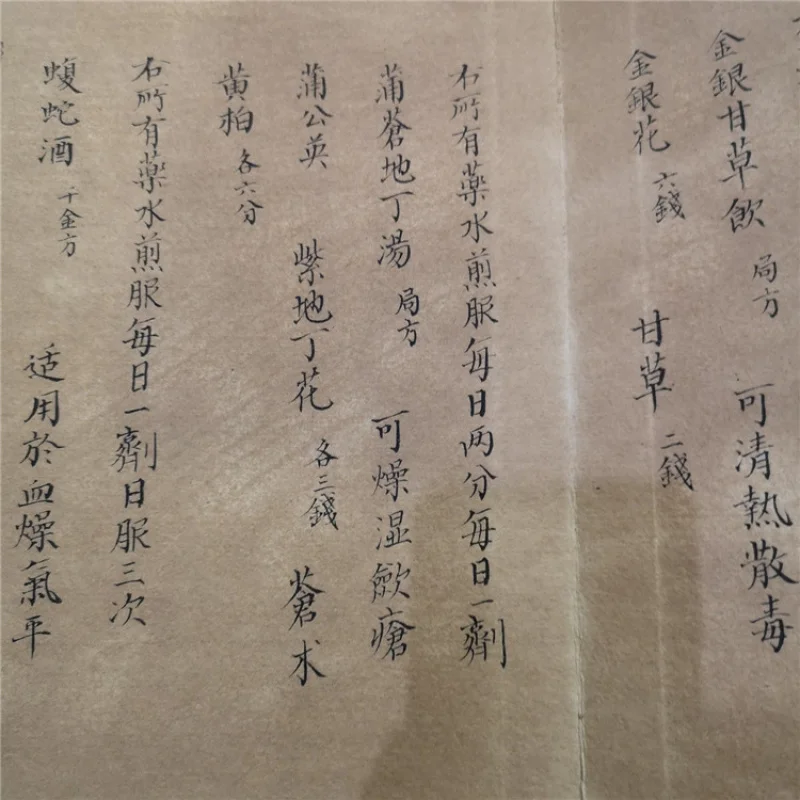 金銀甘草飲 局方 可清熱散毒
金銀花 六錢 甘草 二錢
右所有藥水煎服每日两分每日一劑
蒲蒼地丁湯 局方 可燥湿斂瘡
蒲公英 紫地丁花 各三錢 蒼术
黄柏 各六分
右所有藥水煎服每日一劑日服三次
蝮蛇酒 千金方 适用於血燥氣平